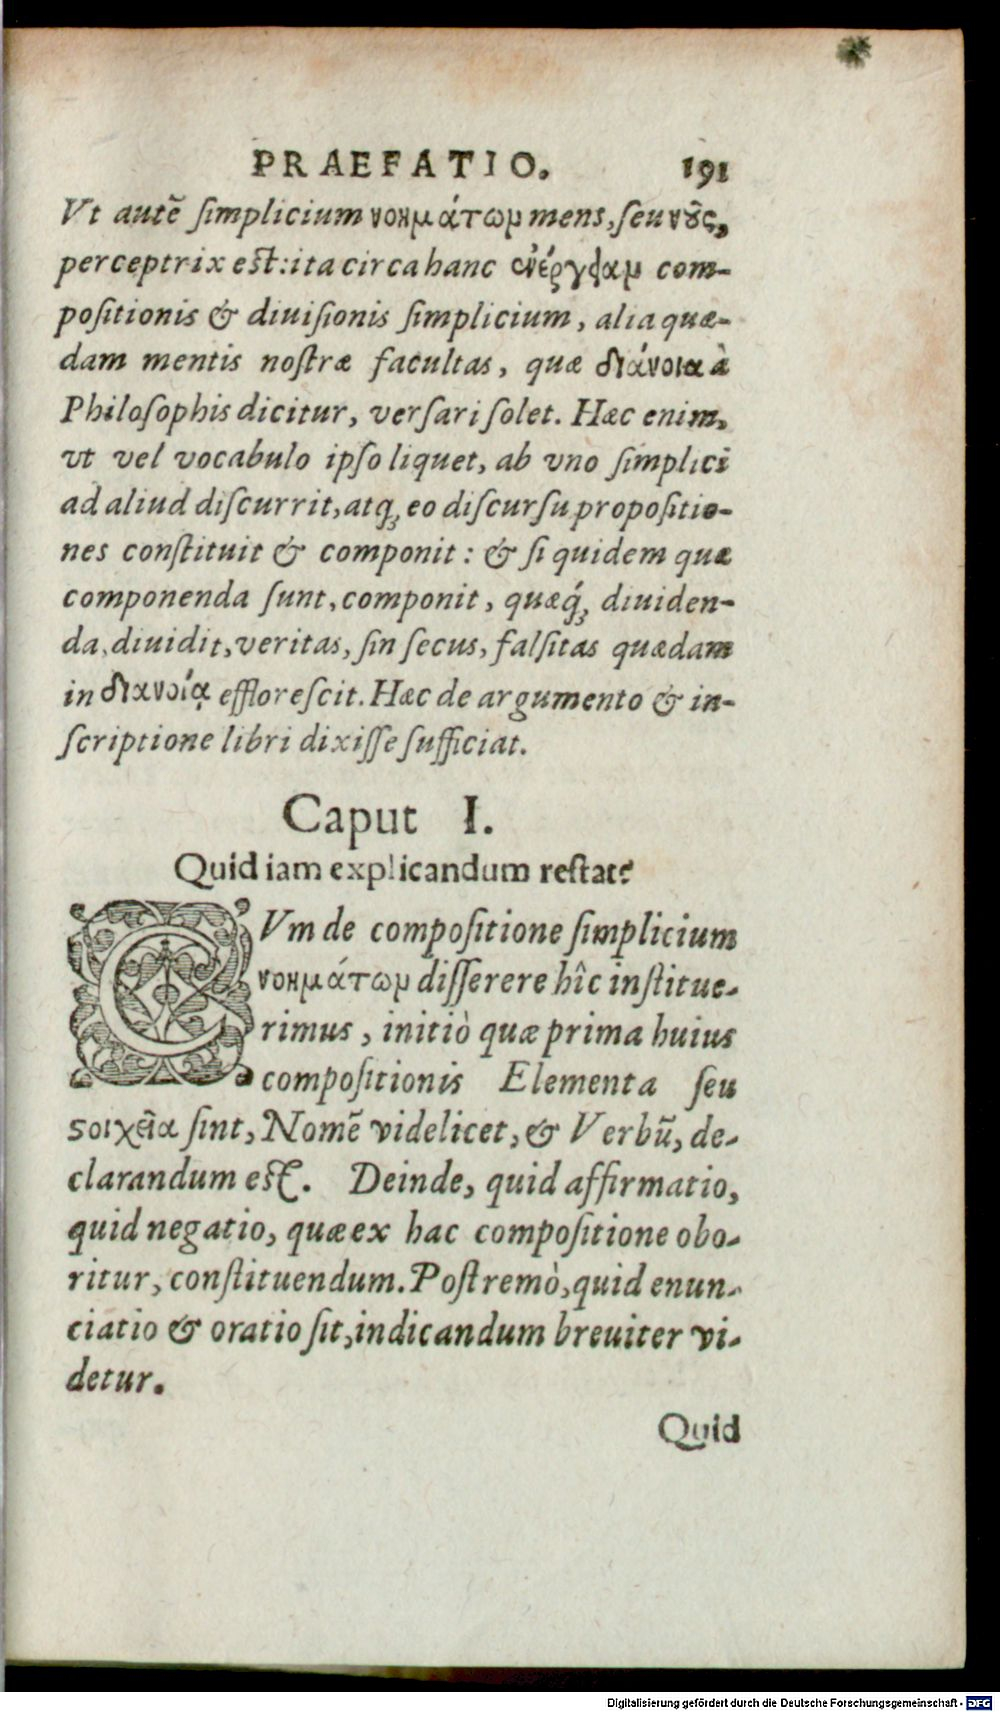 PRAEFATIO. 191
Vt autē simplicium νοημάτων mens, seu νȣ͂ς,
perceptrix est: ita circa hanc ἐνέργειαν com-
positionis & diuisionis simplicium, alia quæ-
dam mentis nostræ facultas, quæ διάνοια à
Philosophis dicitur, versari solet. Hæc enim,
vt vel vocabulo ipso liquet, ab vno simplici
ad aliud discurrit, atq; eo discursu propositio-
nes constituit & componit: & si quidem quæ
componenda sunt, componit, quæq́; diuiden-
da, diuidit, veritas, sin secus, falsitas quædam
in διανοίᾳ efflorescit. Hæc de argumento & in-
scriptione libri dixisse sufficiat.
Caput I.
Quid iam explicandum restat?
CVm de compositione simplicium
νοημάτων disserere hîc institue-
rimus, initiò quæ prima huius
compositionis Elementa seu
ϛοιχεῖα sint, Nomē videlicet, & Verbū, de-
clarandum est. Deinde, quid affirmatio,
quid negatio, quæ ex hac compositione obo-
ritur, constituendum. Postremò, quid enun-
ciatio & oratio sit, indicandum breuiter vi-
detur.
Quid
Digitalisierung gefördert durch die Deutsche Forschungsgemeinschaft - DFG